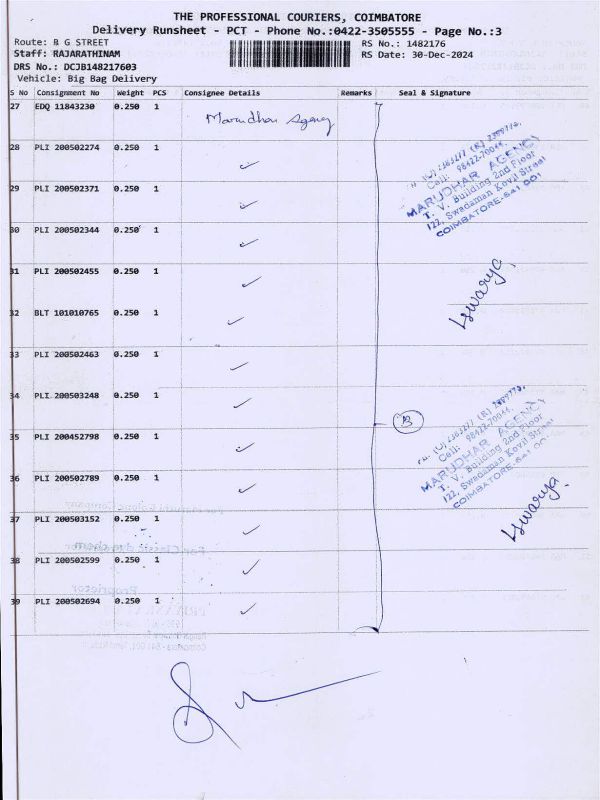 THE PROFESSIONAL COURIERS, COIMBATORE
Delivery Runsheet - PCT - Phone No.:0422-3505555 - Page No.:3
Route: B G STREET RS No.: 1482176
Staff: RAJARATHINAM RS Date: 30-Dec-2024
DRS No.: DCJB148217603
Vehicle: Big Bag Delivery
S No Consignment No Weight PCS Consignee Details Remarks Seal & Signature
27 EDQ 11843230 0.250 1 Marudhar Agency
28 PLI 200502274 0.250 1
29 PLI 200502371 0.250 1
30 PLI 200502344 0.250 1
31 PLI 200502455 0.250 1
32 BLT 101010765 0.250 1
33 PLI 200502463 0.250 1
34 PLI 200503248 0.250 1
35 PLI 200452798 0.250 1
36 PLI 200502789 0.250 1
37 PLI 200503152 0.250 1
38 PLI 200502599 0.250 1
39 PLI 200502694 0.250 1
Cell: 98422-70044,
MARUDHAR AGENCY
T. V. Building 2nd Floor
122, Swadaman Kovil Street
COIMBATORE-641 001
Iswarya
13
Cell: 98422-70044,
MARUDHAR AGENCY
T. V. Building 2nd Floor
122, Swadaman Kovil Street
COIMBATORE-641 001
Iswarya